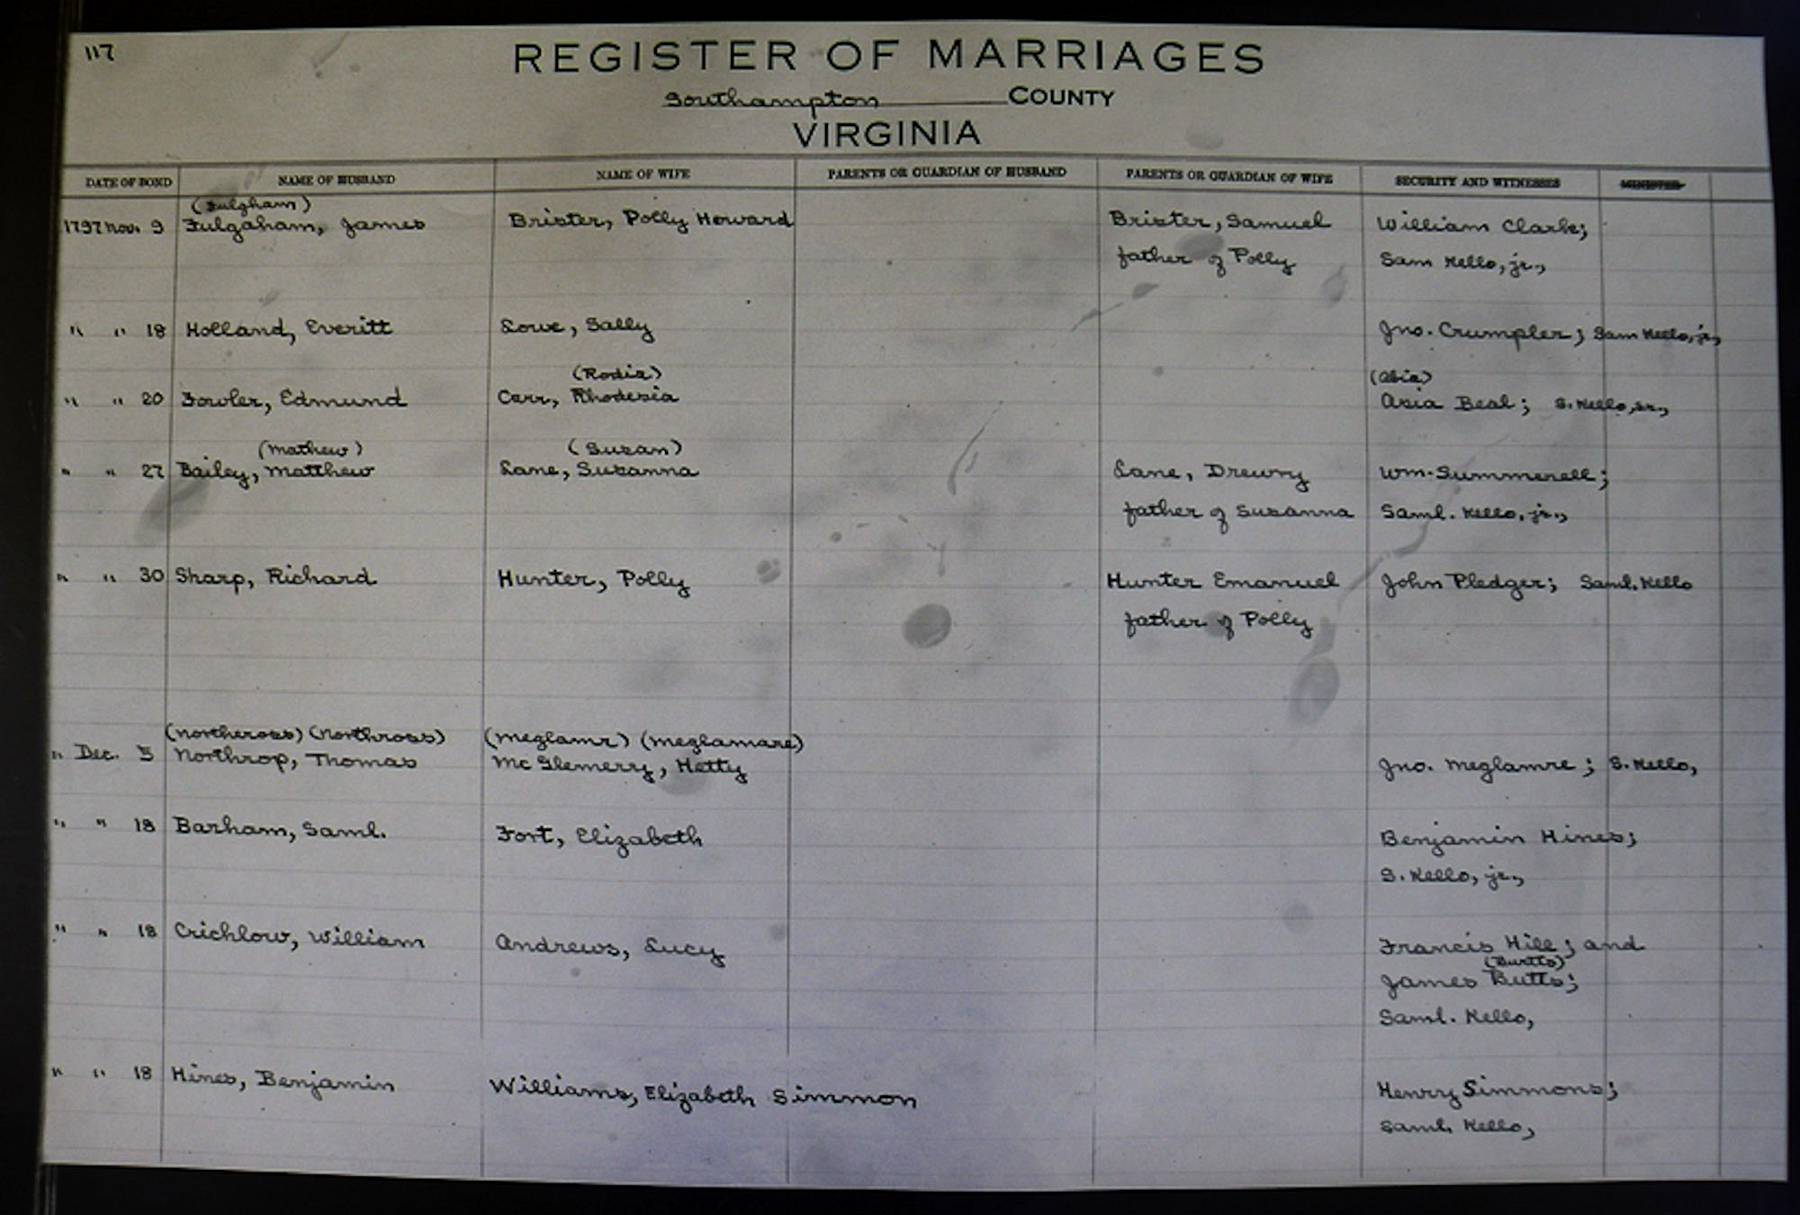 117
REGISTER OF MARRIAGES
Southampton COUNTY
VIRGINIA
DATE OF BOND NAME OF HUSBAND NAME OF WIFE PARENTS OR GUARDIAN OF HUSBAND PARENTS OR GUARDIAN OF WIFE SECURITY AND WITNESSES MINISTER
(Fulgham)
1797 Nov. 9 Fulgaham, James Brister, Polly Howard Brister, Samuel William Clark;
father of Polly Sam Kello, jr.,
" " 18 Holland, Everitt Lowe, Sally Jno. Crumpler; Sam Kello, jr.,
(Rodia) (Abia)
" " 20 Fowler, Edmund Carr, Rhodesia Asia Beal; S. Kello, sr.,
(Mathew) (Susan)
" " 27 Bailey, Matthew Lane, Susanna Lane, Drewry Wm. Summerell;
father of Susanna Saml. Kello, jr.,
" " 30 Sharp, Richard Hunter, Polly Hunter Emanuel John Pledger; Saml. Kello
father of Polly
(Northcross) (Northross) (Meglamr) (Meglamare)
" Dec. 5 Northrop, Thomas Mc Glemerry, Hetty Jno. Meglamre; S. Kello,
" " 18 Barham, Saml. Fort, Elizabeth Benjamin Hines;
S. Kello, jr.,
" " 18 Crichlow, William Andrews, Lucy Francis Hill; and
(Burtts)
James Butts;
Saml. Kello,
" " 18 Hines, Benjamin Williams, Elizabeth Simmon Henry Simmons;
Saml. Kello,